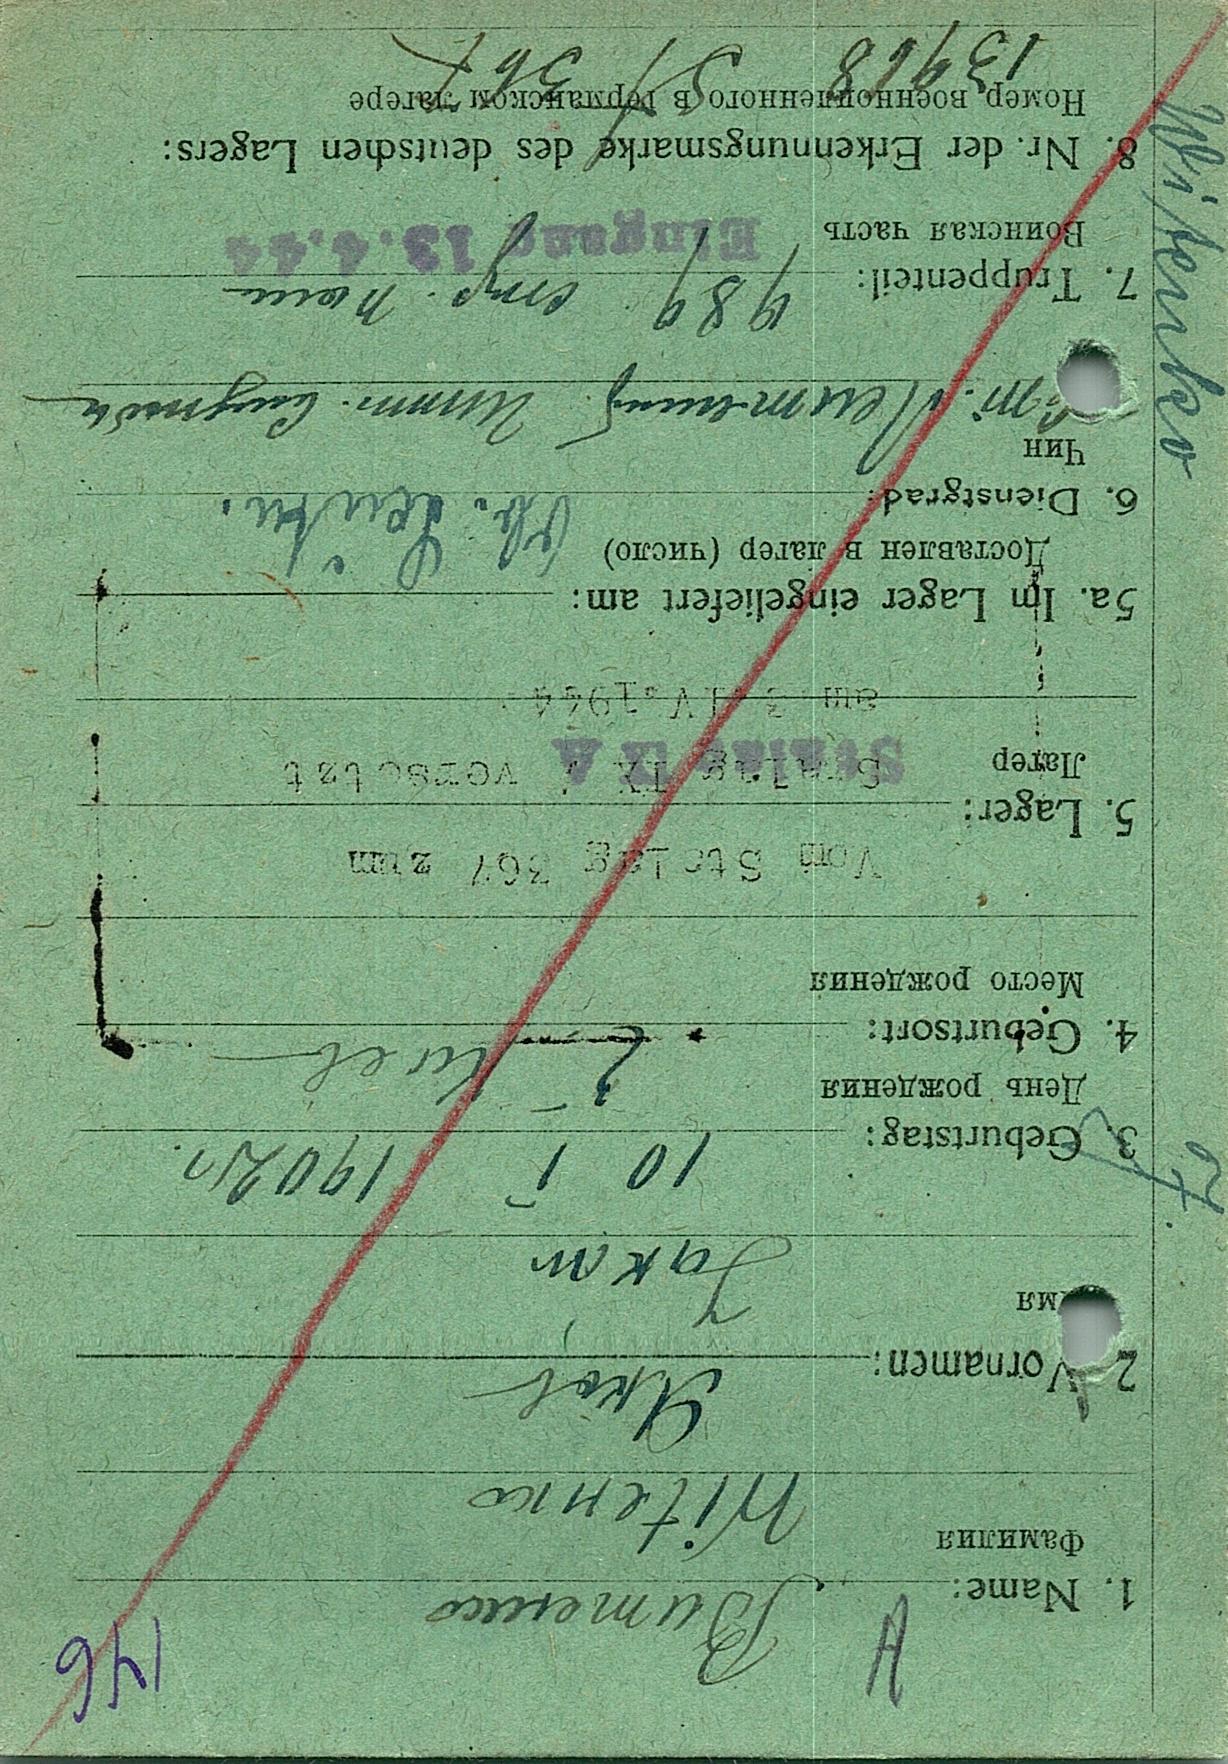 146
A
1. Name: Витенко
Фамилия
Witenko
2. Vornamen: Яков
Имя
Jakow
3. Geburtstag: 10 I 1902г.
День рождения
4. Geburtsort: г. Киев
Место рождения
Vom Stalag 367 zum
5. Lager: Stalag IX A versetzt
Лагер
Stalag IX A
am 3.IV.1944
5a. Im Lager eingeliefert am:
Доставлен в лагер (число)
6. Dienstgrad:
Чин
7. Truppenteil: 989 стр. полк
Воинская часть
Eingang 13.4.44
8. Nr. der Erkennungsmarke des deutschen Lagers:
Номер военнопленного в Германском лагере
13968 367
Witenko